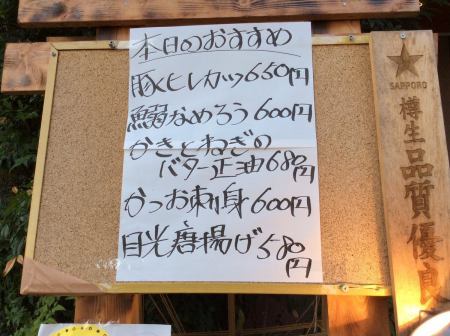 本日のおすすめ
豚ヒレカツ650円
鰯なめろう600円
かきとねぎの
バター正油680円
かつお刺身600円
目光唐揚げ580円
SAPPORO
樽生品質優良